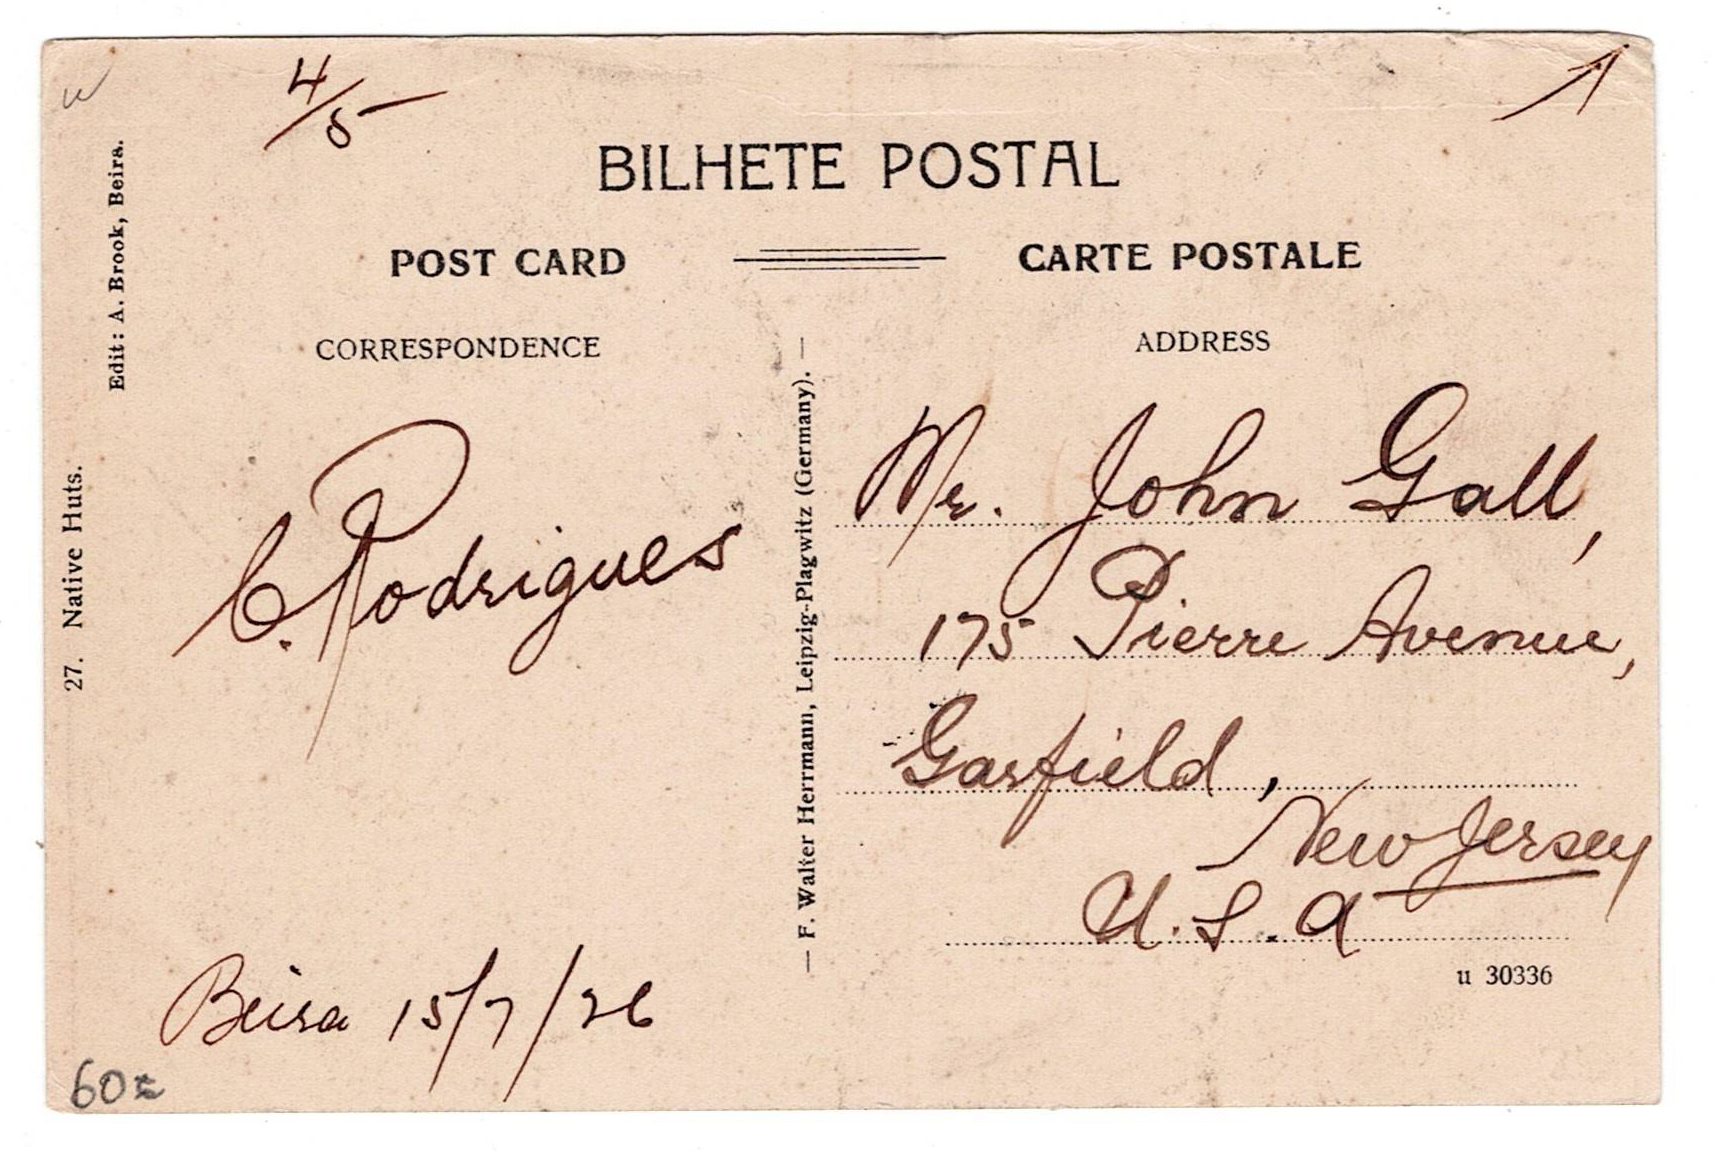 4/5
BILHETE POSTAL
POST CARD
CARTE POSTALE
CORRESPONDENCE
ADDRESS
Edit: A. Brook, Beira.
27. Native Huts.
C. Rodrigues
Beira 15/7/26
60
— F. Walter Herrmann, Leipzig-Plagwitz (Germany). —
Mr. John Gall,
175 Pierre Avenue,
Garfield,
New Jersey
U.S.A
u 30336